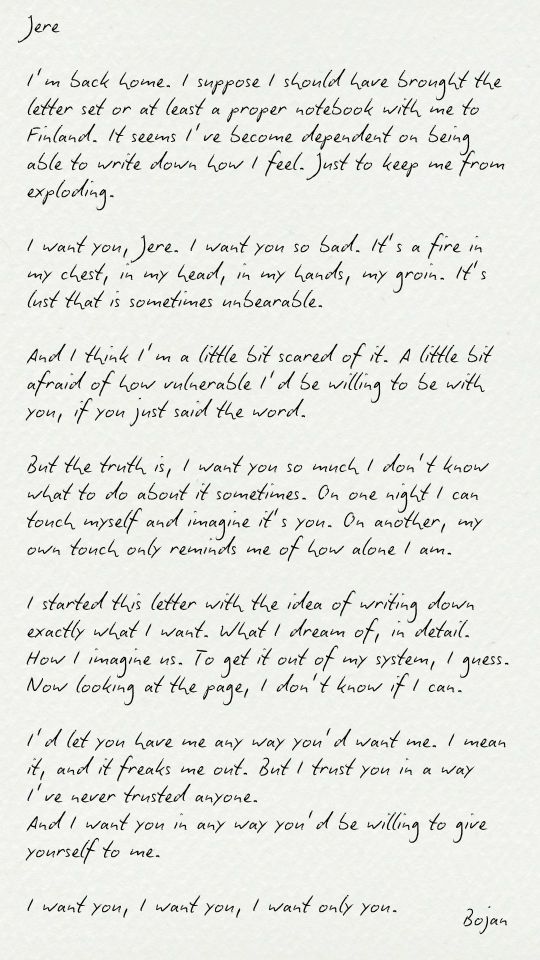 Jere
I'm back home. I suppose I should have brought the
letter set or at least a proper notebook with me to
Finland. It seems I've become dependent on being
able to write down how I feel. Just to keep me from
exploding.
I want you, Jere. I want you so bad. It's a fire in
my chest, in my head, in my hands, my groin. It's
lust that is sometimes unbearable.
And I think I'm a little bit scared of it. A little bit
afraid of how vulnerable I'd be willing to be with
you, if you just said the word.
But the truth is, I want you so much I don't know
what to do about it sometimes. On one night I can
touch myself and imagine it's you. On another, my
own touch only reminds me of how alone I am.
I started this letter with the idea of writing down
exactly what I want. What I dream of, in detail.
How I imagine us. To get it out of my system, I guess.
Now looking at the page, I don't know if I can.
I'd let you have me any way you'd want me. I mean
it, and it freaks me out. But I trust you in a way
I've never trusted anyone.
And I want you in any way you'd be willing to give
yourself to me.
I want you, I want you, I want only you.
Bojan